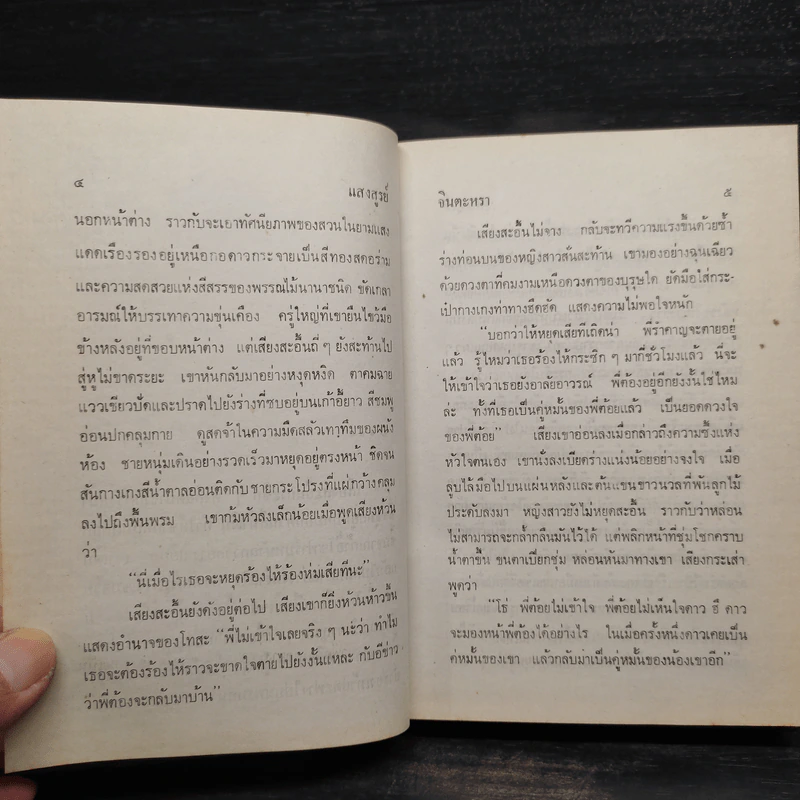 ๔
แสงสูรย์
นอกหน้าต่าง ราวกับจะเอาทัศนียภาพของสวนในยามแสง
แดดเรืองรองอยู่เหนือกอดาวกระจายเป็นสีทองสดอร่าม
และความสดสวยแห่งสีสรรของพรรณไม้นานาชนิด ขัดเกลา
อารมณ์ให้บรรเทาความขุ่นเคือง ครู่ใหญ่ที่เขายืนไขว้มือ
ข้างหลังอยู่ที่ขอบหน้าต่าง แต่เสียงสะอื้นถี่ ๆ ยังสะท้านไป
สู่หูไม่ขาดระยะ เขาหันกลับมาอย่างหงุดหงิด ตาคมฉาย
แววเขียวปัดและปราดไปยังร่างที่ซบอยู่บนเก้าอี้ยาว สีชมพู
อ่อนปกคลุมกาย ดูสดจ้าในความมืดสลัวเทาทึมของผนัง
ห้อง ชายหนุ่มเดินอย่างรวดเร็วมาหยุดอยู่ตรงหน้า ชิดจน
สันกางเกงสีน้ำตาลอ่อนติดกับชายกระโปรงที่แผ่กว้างคลุม
ลงไปถึงพื้นพรม เขาก้มหัวลงเล็กน้อยเมื่อพูดเสียงห้วน
ว่า
“นี่เมื่อไรเธอจะหยุดร้องไห้ร้องห่มเสียทีนะ”
เสียงสะอื้นยังดังอยู่ต่อไป เสียงเขาก็ยิ่งห้วนห้าวขึ้น
แสดงอำนาจของโทสะ “พี่ไม่เข้าใจเลยจริง ๆ นะ์ว่า ทำไม
เธอจะต้องร้องไห้ราวจะขาดใจตายไปยังงั้นแหละ กับอีข่าว
ว่าพี่ต้องจะกลับมาบ้าน”
จินตะหรา
๕
เสียงสะอื้นไม่จาง กลับจะทวีความแรงขึ้นด้วยซ้ำ
ร่างท่อนบนของหญิงสาวสั่นสะท้าน เขามองอย่างฉุนเฉียว
ด้วยดวงตาที่คมงามเหนือดวงตาของบุรุษใด ยัดมือใส่กระ-
เป๋ากางเกงท่าทางฮึดฮัด แสดงความไม่พอใจหนัก
“บอกว่าให้หยุดเสียทีเถิดน่า พี่รำคาญจะตายอยู่
แล้ว รู้ไหมว่าเธอร้องไห้กระซิก ๆ มากี่ชั่วโมงแล้ว นี่จะ
ให้เข้าใจว่าเธอยังอาลัยอาวรณ์ พี่ต้องอยู่อีกยังงั้นใช่ไหม
ล่ะ ทั้งที่เธอเป็นคู่หมั้นของพี่ต้อยแล้ว เป็นยอดดวงใจ
ของพี่ต้อย” เสียงเขาอ่อนลงเมื่อกล่าวถึงความซึ้งแห่ง
หัวใจตนเอง เขานั่งลงเบียดร่างแน่งน้อยอย่างจงใจ เมื่อ
ลูบไล้มือไปบนแผ่นหลังและต้นแขนขาวนวลที่พันลูกไม้
ประดับลงมา หญิงสาวยังไม่หยุดสะอื้น ราวกับว่าหล่อน
ไม่สามารถจะกล้ำกลืนมันไว้ได้ แต่พลิกหน้าที่ชุ่มโชกคราบ
น้ำตาขึ้น ขนตาเปียกชุ่ม หล่อนหันมาทางเขา เสียงกระเส่า
พูดว่า
“โธ่ พี่ต้อยไม่เข้าใจ พี่ต้อยไม่เห็นใจดาว ฮึ ดาว
จะมองหน้าพี่ต้องได้อย่างไร ในเมื่อครั้งหนึ่งดาวเคยเป็น
คู่หมั้นของเขา แล้วกลับมาเป็นคู่หมั้นของน้องเขาอีก”